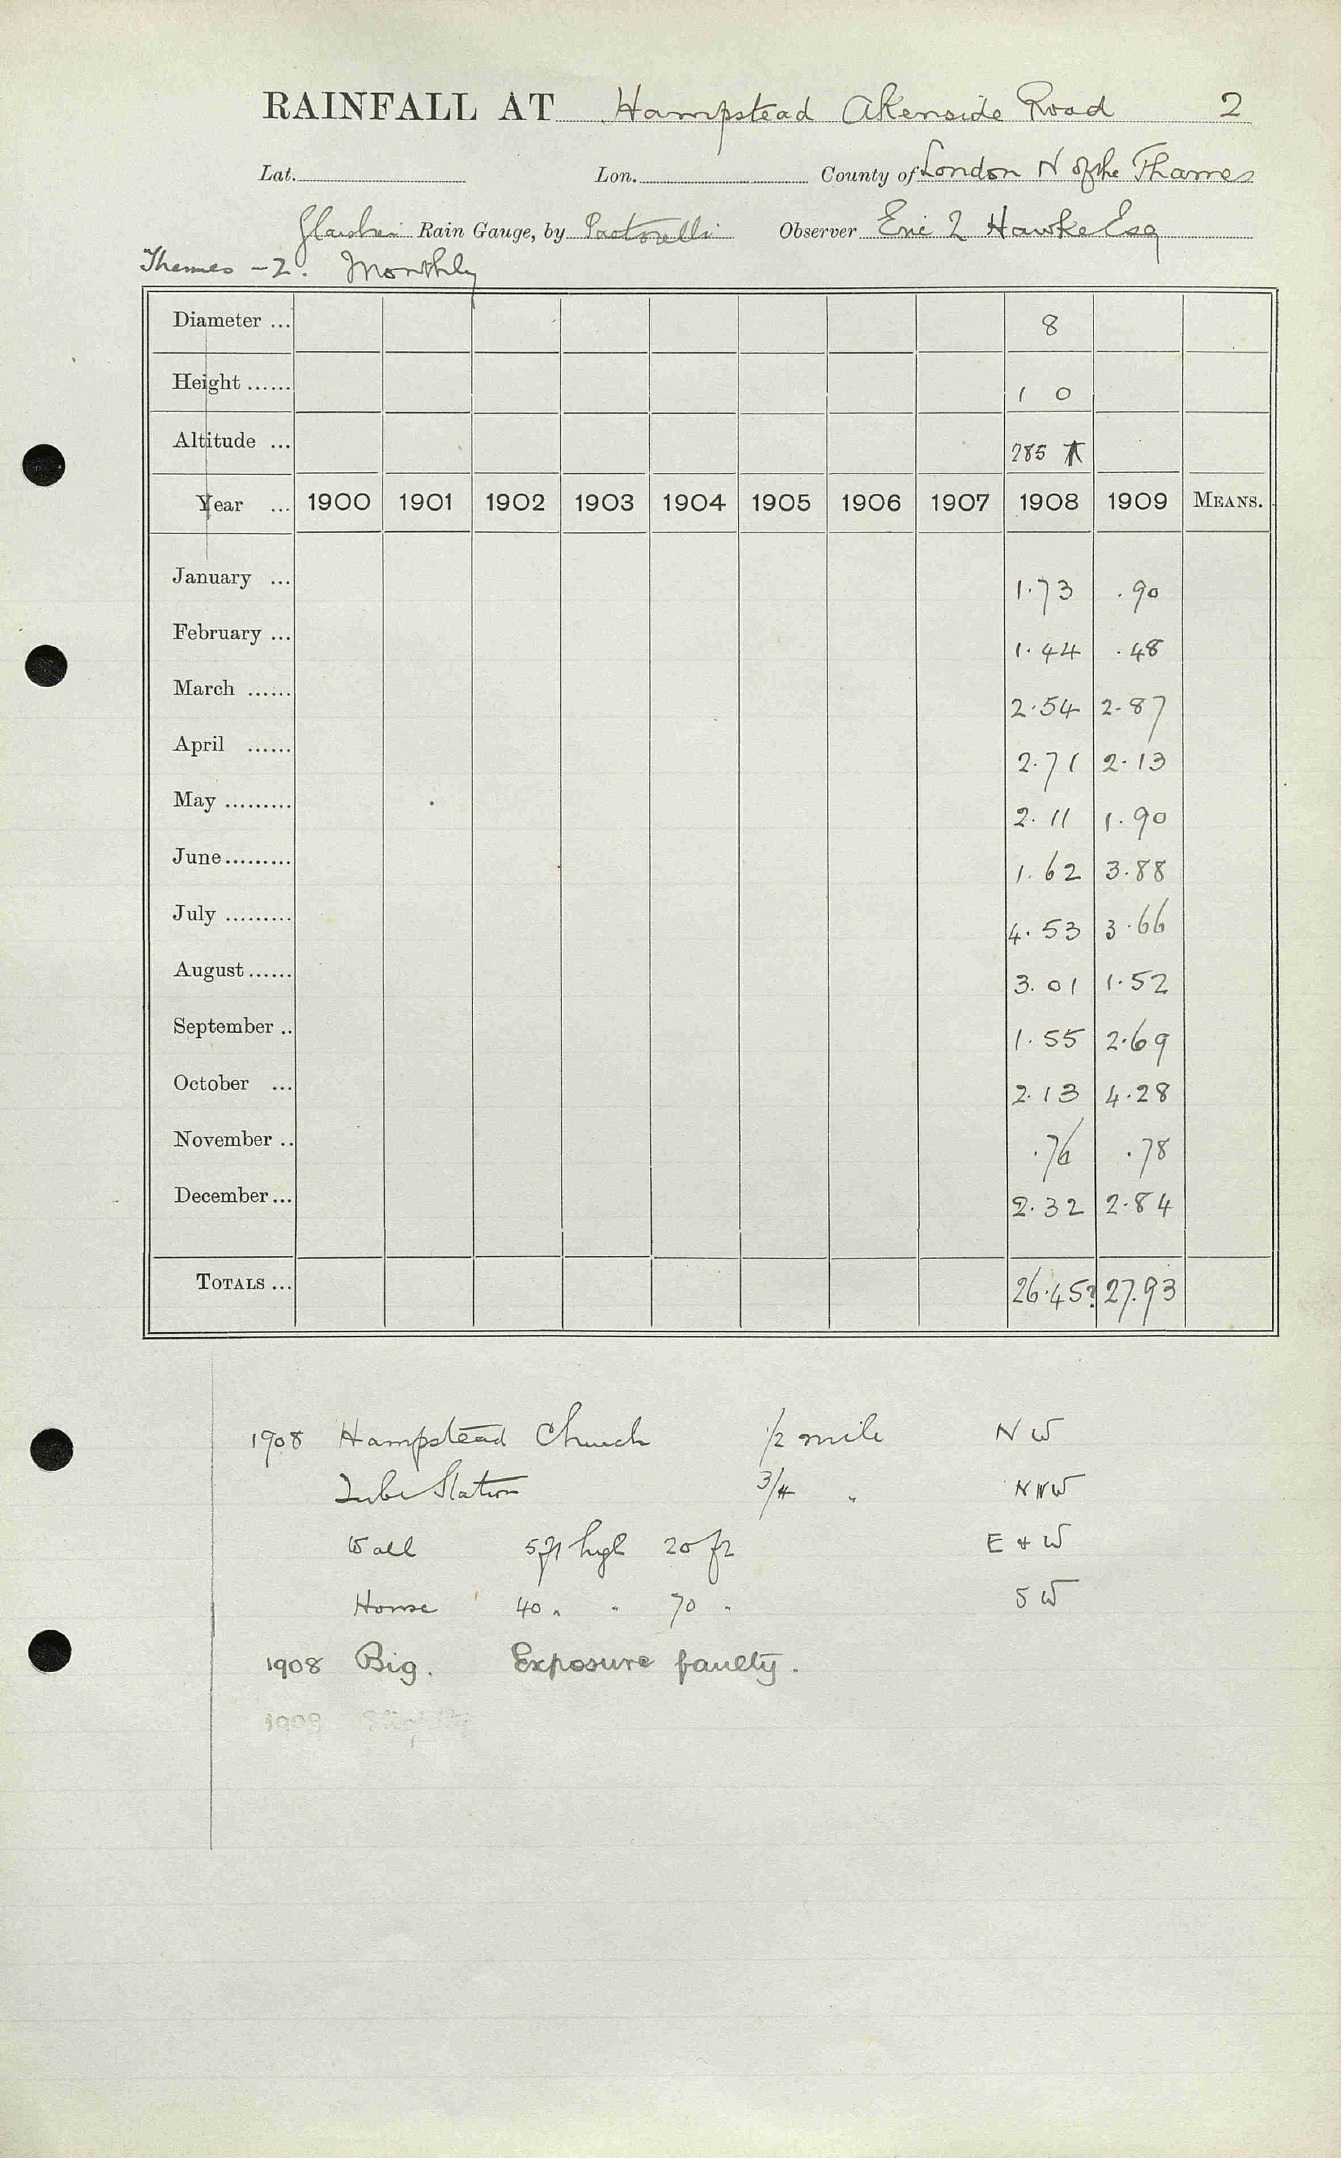 RAINFALL AT Hampstead Akenside Road 2
Lat. Lon. County of London N of the Thames
Glaisher Rain Gauge, by Pastorelli Observer Eric L Hawke Esq
Thames - 2. Monthly
Diameter ... 8
Height ...... 1 0
Altitude ... 285
Year ... 1900 1901 1902 1903 1904 1905 1906 1907 1908 1909 MEANS.
January ... 1.73 .90
February ... 1.44 .48
March ...... 2.54 2.87
April ...... 2.71 2.13
May ......... 2.11 1.90
June ......... 1.62 3.88
July ......... 4.53 3.66
August ...... 3.01 1.52
September .. 1.55 2.69
October ... 2.13 4.28
November .. .76 .78
December ... 2.32 2.84
TOTALS ... 26.45? 27.93
1908 Hampstead Church 1/2 mile N W
Tube Station 3/4 " N N W
Wall 5 ft high 20 ft E + W
House 40 " " 70 " S W
1908 Big. Exposure faulty.
1909